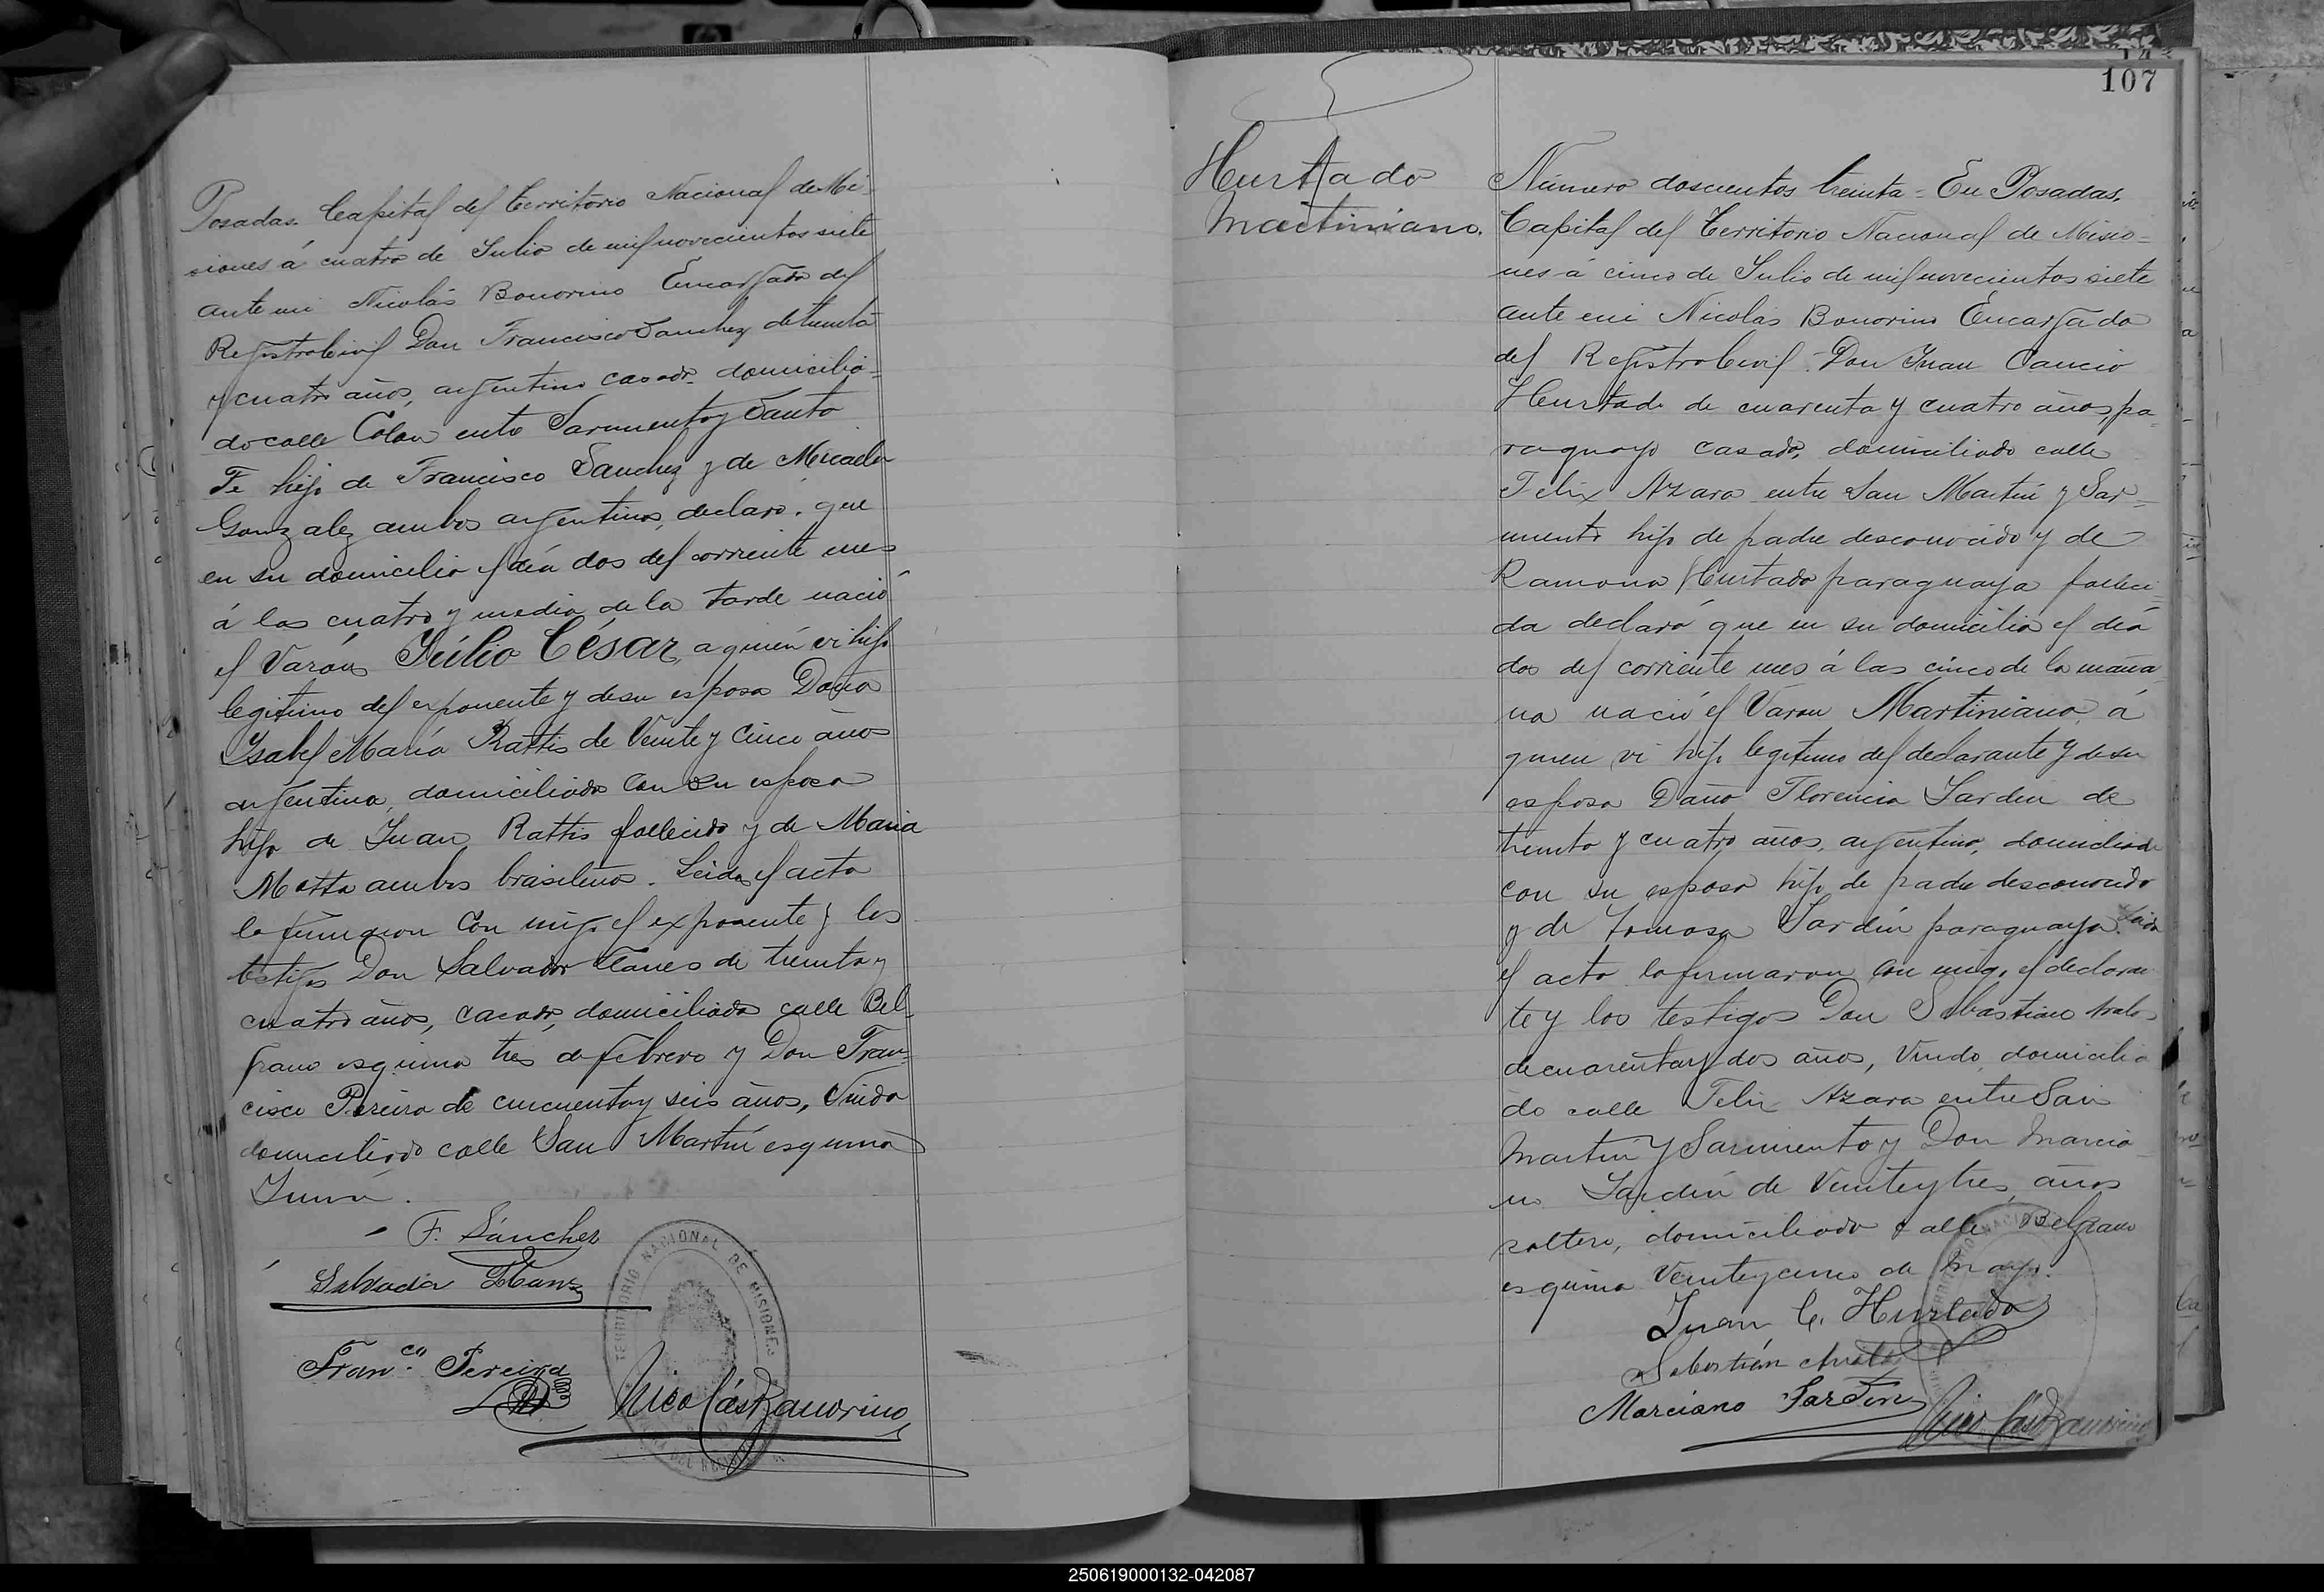 Posadas. Capital del Territorio Nacional de Mi-
siones á cuatro de Julio de mil novecientos siete
ante mi Nicolás Bonorino Encargado del
Registro Civil Don Francisco Sanchez de treinta
y cuatro años, argentino casado domicilia-
do calle Colon entre Sarmiento y Santa
Fe hijo de Francisco Sanchez y de Micaela
Gonzalez ambos argentinos, declaró: que
en su domicilio el día dos del corriente mes
á las cuatro y media de la tarde nació
el Varón Júlio César, a quién vi hijo
legitimo del exponente y de su esposa Doña
Ysabel María Rattis de Veinte y Cinco años
argentina, domiciliada con su esposo
hija de Juan Rattis fallecido y de Maria
Motta ambos brasileños. Leida el acta
la firmaron con migo el exponente y los
testigos Don Salvador de treinta y
cuatro años, casado, domiciliado calle Bel-
grano esquina tres de febrero y Don Fran-
cisco Pereira de cincuenta y seis años, Viudo
domiciliado calle San Martin esquina
F. Sánchez
Salvador
Fran.co Pereira
Nicolás Bonorino
TERRITORIO NACIONAL DE MISIONES
107
Hurtado
Martiniano.
Número doscientos treinta - En Posadas,
Capital del Territorio Nacional de Misio-
nes á cinco de Julio de mil novecientos siete
ante mi Nicolás Bonorino Encargado
del Registro Civil. Don Juan Cancio
Hurtado de cuarenta y cuatro años, pa-
raguayo casado, domiciliado calle
Felix Azara entre San Martin y Sar-
miento hijo de padre desconocido y de
Ramona Hurtado paraguaya falleci-
da declaró que en su domicilio el día
dos del corriente mes á las cinco de la maña
na nació el Varon Martiniano á
quien vi hijo legitimo del declarante y de su
esposa Doña Florencia Jardin de
treinta y cuatro años, argentina, domiciliada
con su esposo hija de padre desconocido
y de Tomasa Jardín paraguaya. Leida
el acta la firmaron con migo, el declaran
te y los testigos Don Sebastian
de cuarenta y dos años, Viudo, domicilia
do calle Felix Azara entre San
Martin y Sarmiento y Don Marcia-
no Jardín de Veinte y tres años
soltero, domiciliado calle Belgrano
esquina Veinte y cinco de Mayo.
Juan C. Hurtado
Sebastián
Marciano Jardin
Nicolás Bonorino
250619000132-042087